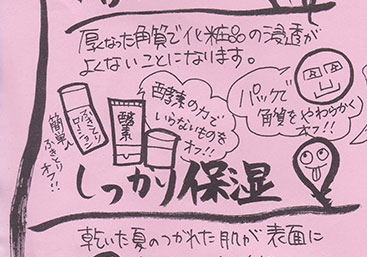 厚くなった角質で化粧品の浸透が
よくないことになります。
酵素の力で
いらないものを
オフ!!
パックで
角質をやわらかく
オフ!!
ふきとり
ローション
酵素
簡単
ふきとり
オフ!!
しっかり保湿
乾いた夏のつかれた肌が表面に